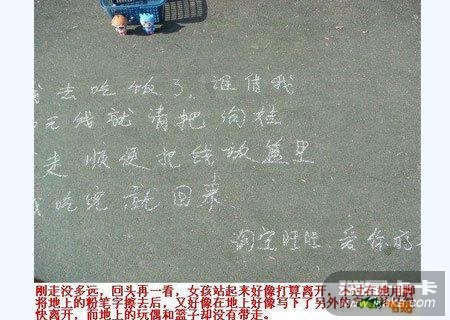 我去吃饭了，谁借我
元钱就请把
走 顺便把钱放篮里
我吃完就回来
淘宝旺旺、爱你的
刚走没多远，回头再一看，女孩站起来好像打算离开，地用脚
将地上的粉笔字擦去后，又好像在地上好像写下了另外的字
快离开，而地上的玩偶和篮子却没有带走。